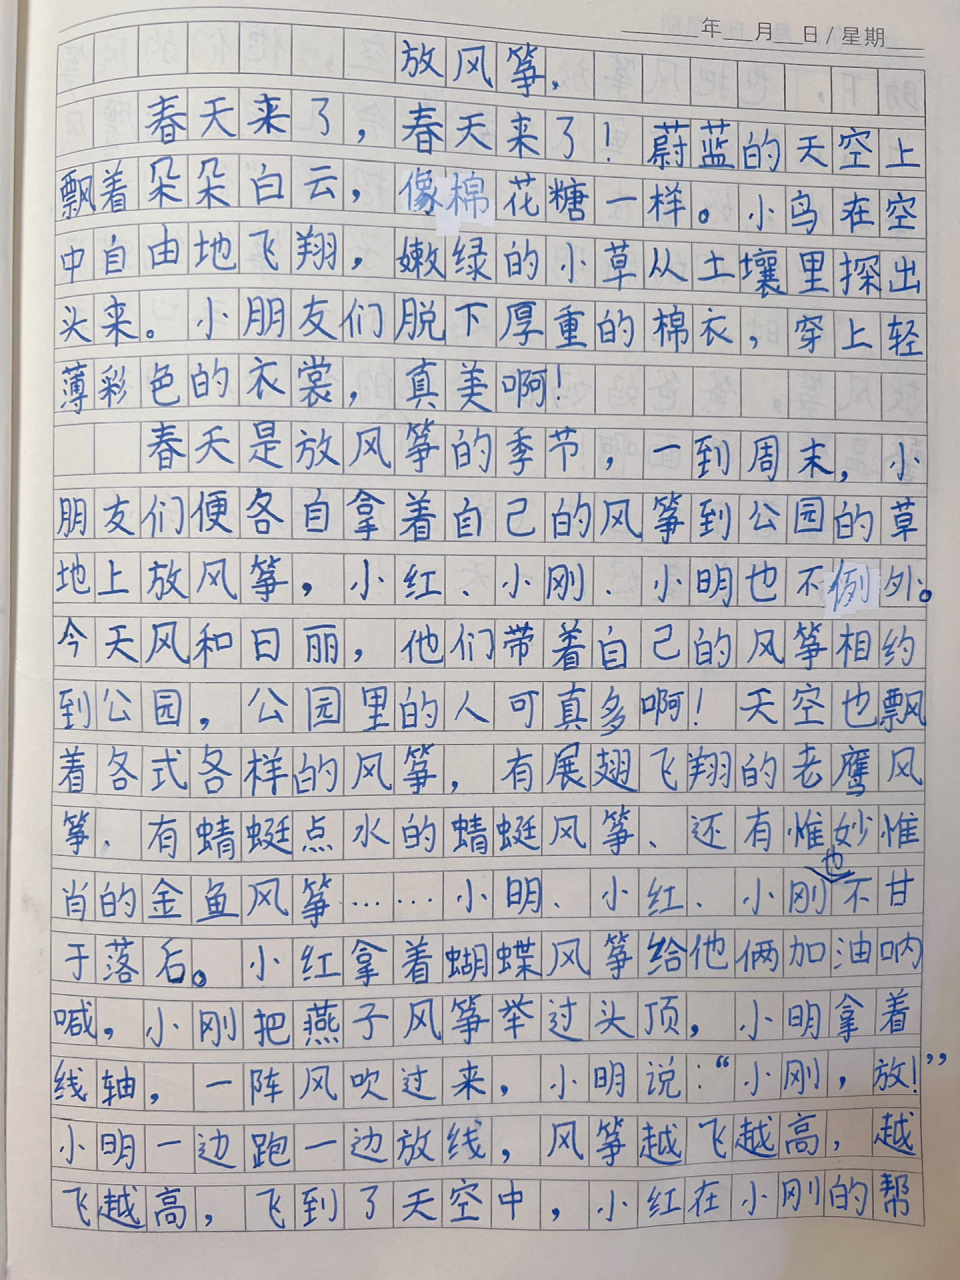 年 月 日/星期
放风筝.
春天来了，春天来了！蔚蓝的天空上
飘着朵朵白云，像棉花糖一样。小鸟在空
中自由地飞翔，嫩绿的小草从土壤里探出
头来。小朋友们脱下厚重的棉衣，穿上轻
薄彩色的衣裳，真美啊！
春天是放风筝的季节，一到周末，小
朋友们便各自拿着自己的风筝到公园的草
地上放风筝，小红、小刚、小明也不例外。
今天风和日丽，他们带着自己的风筝相约
到公园，公园里的人可真多啊！天空也飘
着各式各样的风筝，有展翅飞翔的老鹰风
筝、有蜻蜓点水的蜻蜓风筝、还有惟妙惟
肖的金鱼风筝……小明、小红、小刚也不甘
于落后。小红拿着蝴蝶风筝给他俩加油呐
喊，小刚把燕子风筝举过头顶，小明拿着
线轴，一阵风吹过来，小明说：“小刚，放！”
小明一边跑一边放线，风筝越飞越高，越
飞越高，飞到了天空中，小红在小刚的帮